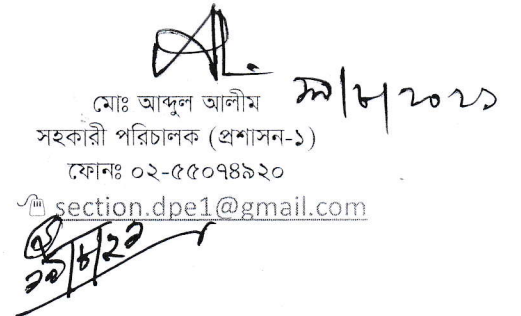 মোঃ আব্দুল আলীম
সহকারী পরিচালক (প্রশাসন-১)
ফোনঃ ০২-৫৫০৭৪৯২০
section.dpe1@gmail.com